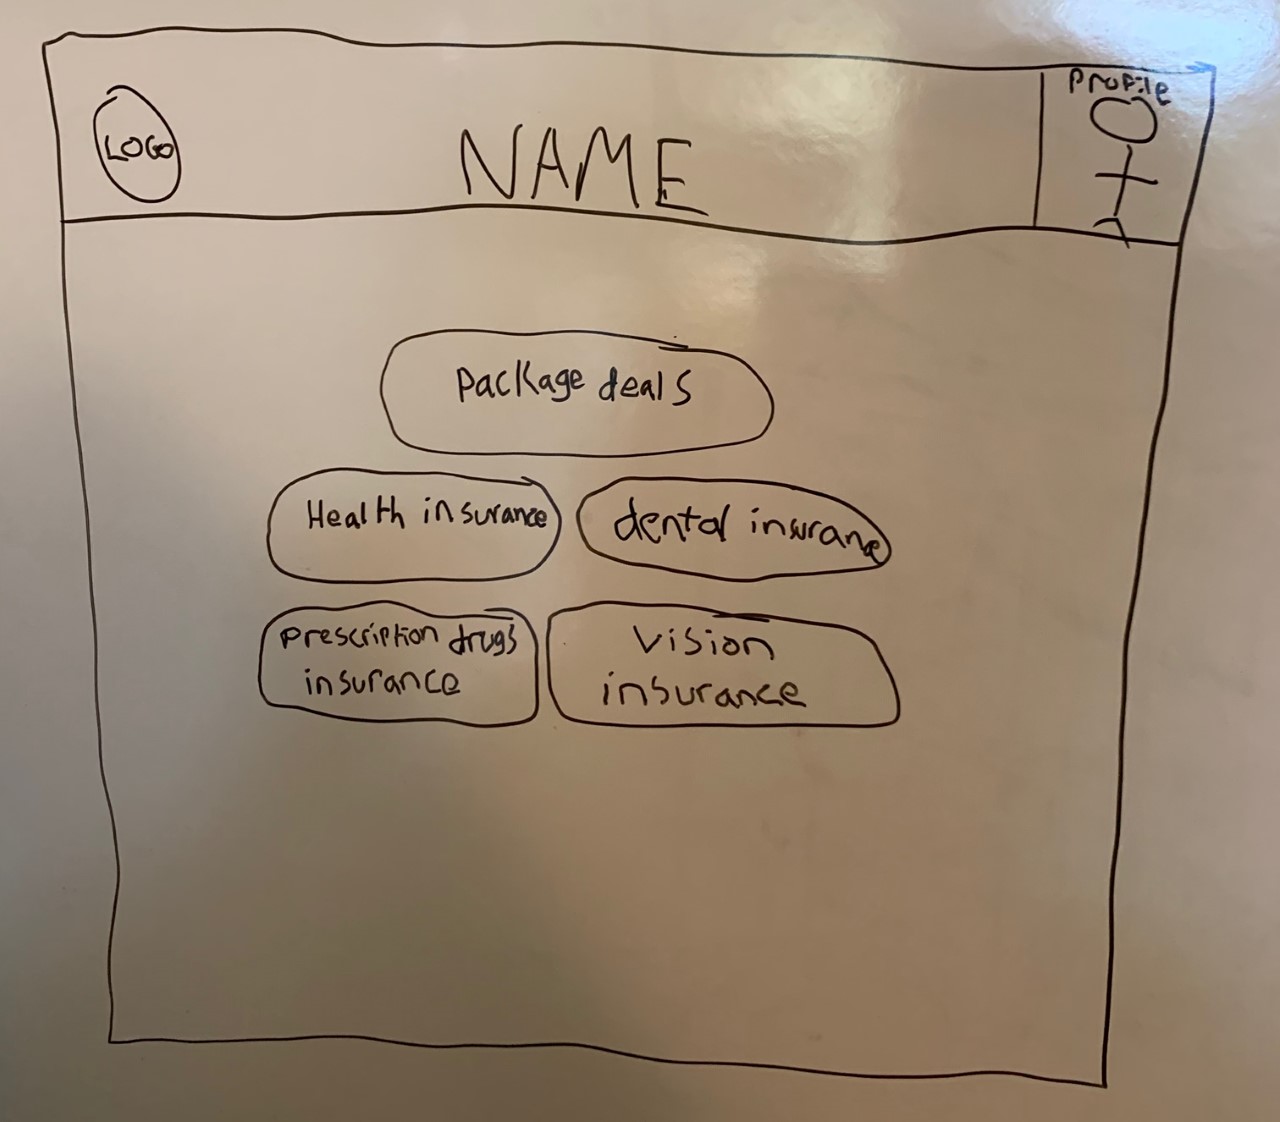 Profile
LOGO
NAME
Package deals
Health insurance
dental insurance
Prescription drugs
insurance
Vision
insurance